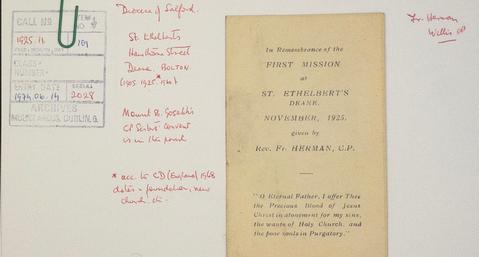 CALL NO
ITEM NO
1925.11
709
CLASS-
NUMBER-
ENTRY DATE
SERIAL
1974.06.14
2028
ARCHIVES
MOUNT ARGUS, DUBLIN, 6.
Diocese of Salford.
St. Ethelberts
Street
Deane, BOLTON
(1905. 1925.* )
Mount St. Joseph's
CP Convent
is in the parish
* acc. to CD (England) 1968
dates = foundation, new
church, etc.
In Remembrance of the
FIRST MISSION
at
ST. ETHELBERT'S
DEANE.
NOVEMBER, 1925.
given by
Rev. Fr. HERMAN, C.P.
"O Eternal Father, I offer Thee
the Precious Blood of Jesus
Christ in atonement for my sins,
the wants of Holy Church, and
the poor souls in Purgatory."
Fr. Herman
Willis CP